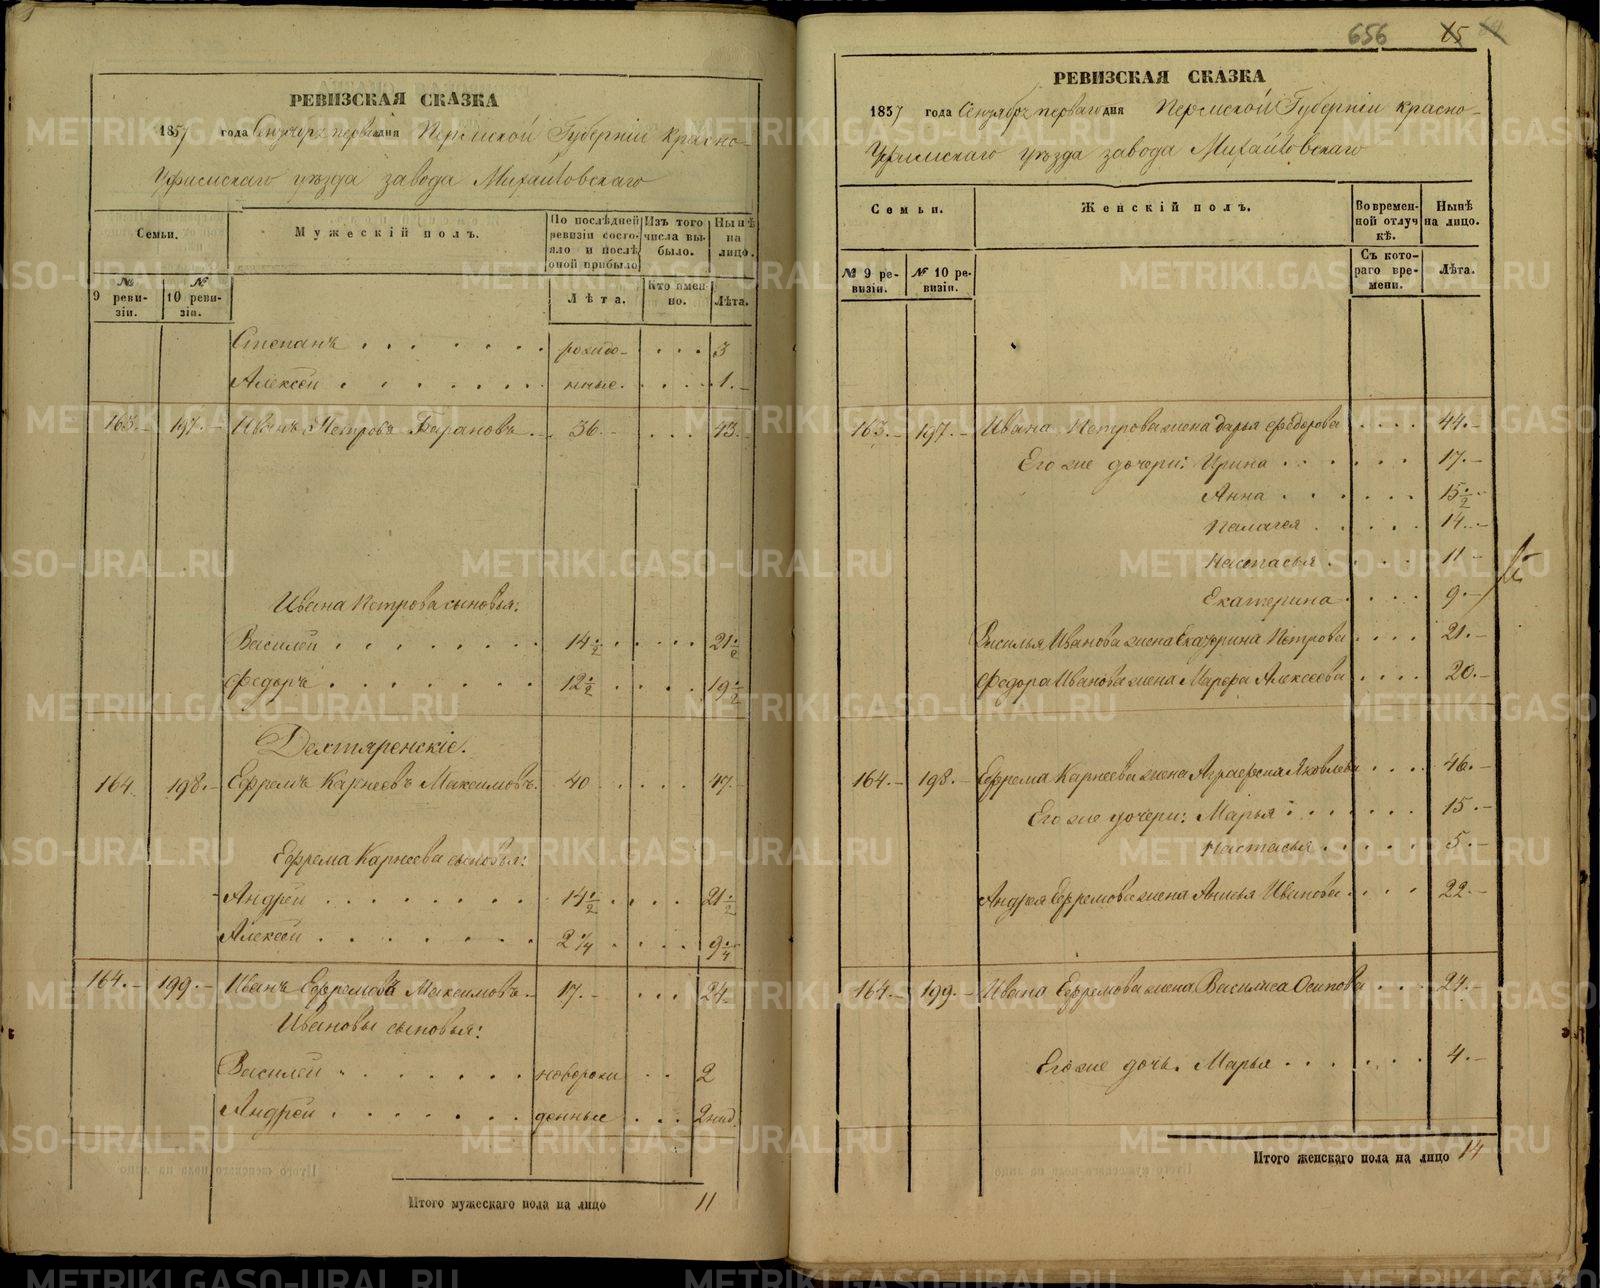 РЕВИЗСКАЯ СКАЗКА
1857 года Сентября перваго дня Пермской Губерніи Красно-
Уфимскаго уѣзда завода Михайловскаго
Семьи.
Мужескій полъ.
По послѣдней ревизіи состояло и послѣ оной прибыло
Изъ того числа выбыло.
Нынѣ на лицо.
№ 9 ревизіи.
№ 10 ревизіи.
Лѣта.
Кто именно.
Лѣта.
Степанъ рожде- 3
Алексѣй нные. 1.
163. 197. Иванъ Петровъ Барановъ 36 43.
Ивана Петрова сыновья:
Василей 14 1/2 21 1/2
Федоръ 12 1/2 19 1/2
Дехтяренскіе.
164 198. Ефремъ Карнеевъ Максимовъ. 40 47.
Ефрема Карнеева сыновья:
Андрей 14 1/2 21 1/2
Алексѣй 2 1/4 9 1/4
164. 199. Иванъ Ефремовъ Максимовъ 17. 24.
Ивановы сыновья:
Василей новорож 2
Андрей денные 2 нед.
Итого мужескаго пола на лицо 11
656 65
РЕВИЗСКАЯ СКАЗКА
1857 года Сентября перваго дня Пермской Губерніи Красно-
Уфимскаго уѣзда завода Михайловскаго
Семьи.
Женскій полъ.
Во временной отлучкѣ.
Нынѣ на лицо.
№ 9 ревизіи.
№ 10 ревизіи.
Съ котораго времени.
Лѣта.
163. 197. Ивана Петрова жена Дарья Федорова 44.
Его же дочери: Ирина 17.
Анна 15 1/2
Пелагея 14.
Настасья 11
Екатерина 9.
Василья Иванова жена Екатерина Петрова 21.
Федора Иванова жена Марфа Алексѣева 20.
164. 198. Ефрема Карнеева жена Аграфена Яковлева 46.
Его же дочери: Марья 15.
Настасья 5.
Андрея Ефремова жена Анисья Иванова 22
164. 199. Ивана Ефремова жена Василиса Осипова 24.
Его же дочь. Марья 4.
Итого женскаго пола на лицо 14
METRIKI.GASO-URAL.RU